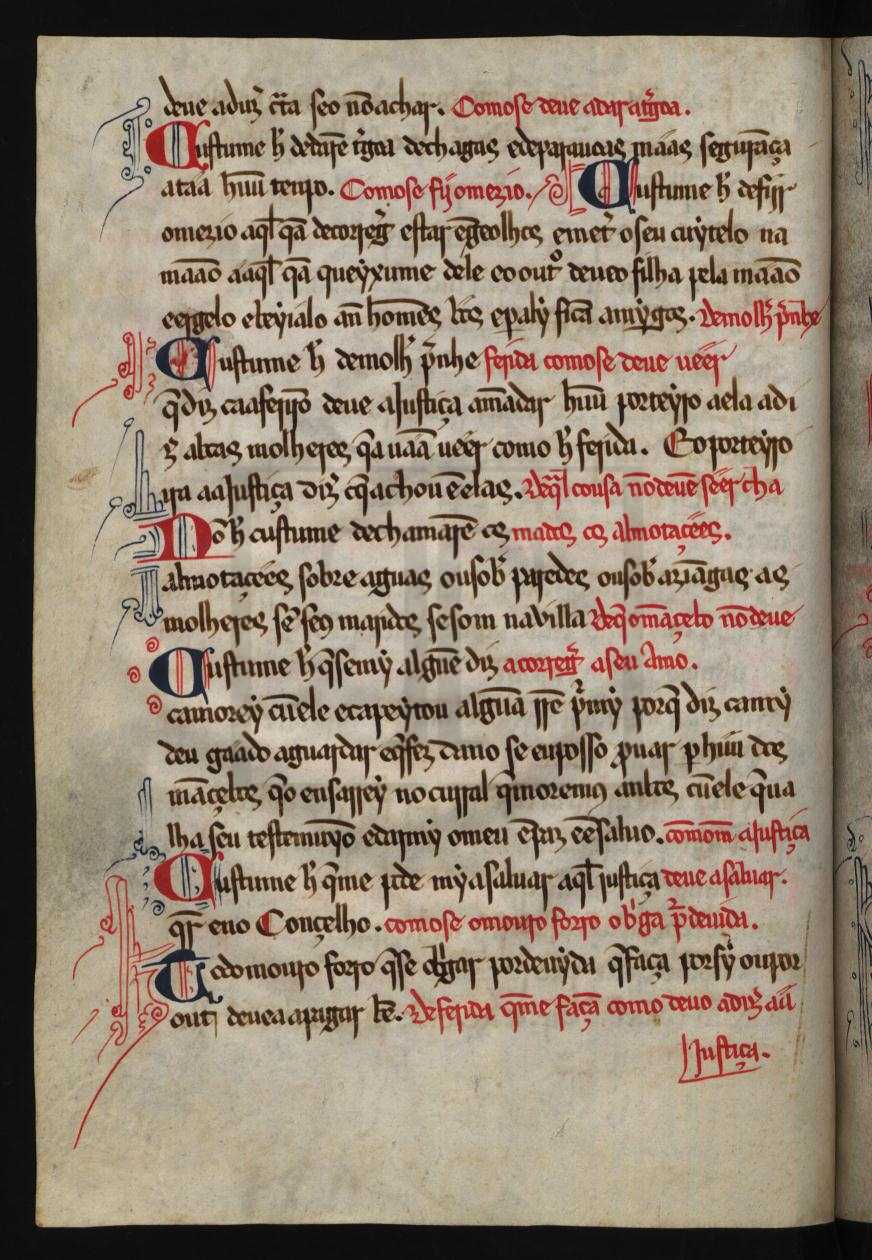 deue adiz̃ c̃ta seo nõ achar. Como se deue a dar a tr̃goa.
Custume h̃ de darẽ tr̃goa de chagas e de parauoas maas segurãça
ataa hũu tenpo. Como se fij omezio. Custume h̃ de fijr
omezio aq̃l q̃a de correg̃ estar ẽ geolhos e met̃ o seu cuytelo na
mããо a aq̃l q̃a queyxume dele e o out̃º deueo filha pela mããо
e ergelo e beyialo an̄ homẽes bõs e p aly ficã amỹgos. De molh̃ p̃nhe
Custume h̃ de molh̃ p̃nhe ferida como se deue ueer
q̃ diz ca a ferirõ deue a Justiça amãdar hũu porteyro a ela adi
z̃ aboas molheres q̃ a uaã ueer como h̃ ferida. E o porteyro
ira aa Justiça diz̃ o q̃ achou ẽ elas. De q̃l cousa nõ deuẽ seer cha
Nõ h̃ custume de chamarẽ os mados os almotaçẽes.
almotaçẽes sobre aguas ou sob̃ paredes ou sob̃ azĩagas as
molheres sẽ seg maridos se som na villa de q̃ o mãçebo nõ deue
Custume h̃ q̃ se me algũẽ diz a correg̃ a seu Amo.
ca morey cũ ele e ca peytou algũa rrẽ p̃ my porq̃ diz ca my
deu gaado a guardar e q̃ fez dano se eu posso p̃uar p hũu dos
mãçebos q̃ o ensarrey no curral q̃ moremus anbos cũ ele q̃ ua
lha seu testemuyo e dar my o meu ẽ paz e ẽ saluo. como m̃ a Justiça
Custume h̃ q̃ me pode my a saluar aq̃l justiça deue a saluar.
q̃r e no Conçelho. como se o mouro forro ob̃ga p̃ deuida.
Todo mouro forro q̃ se ob̃gar por deuyda q̃ faça por sỹ ou por
out̃ deue a a pagar bẽ. De ferida q̃ me façã como deuo adiz̃ aa
Justiça.